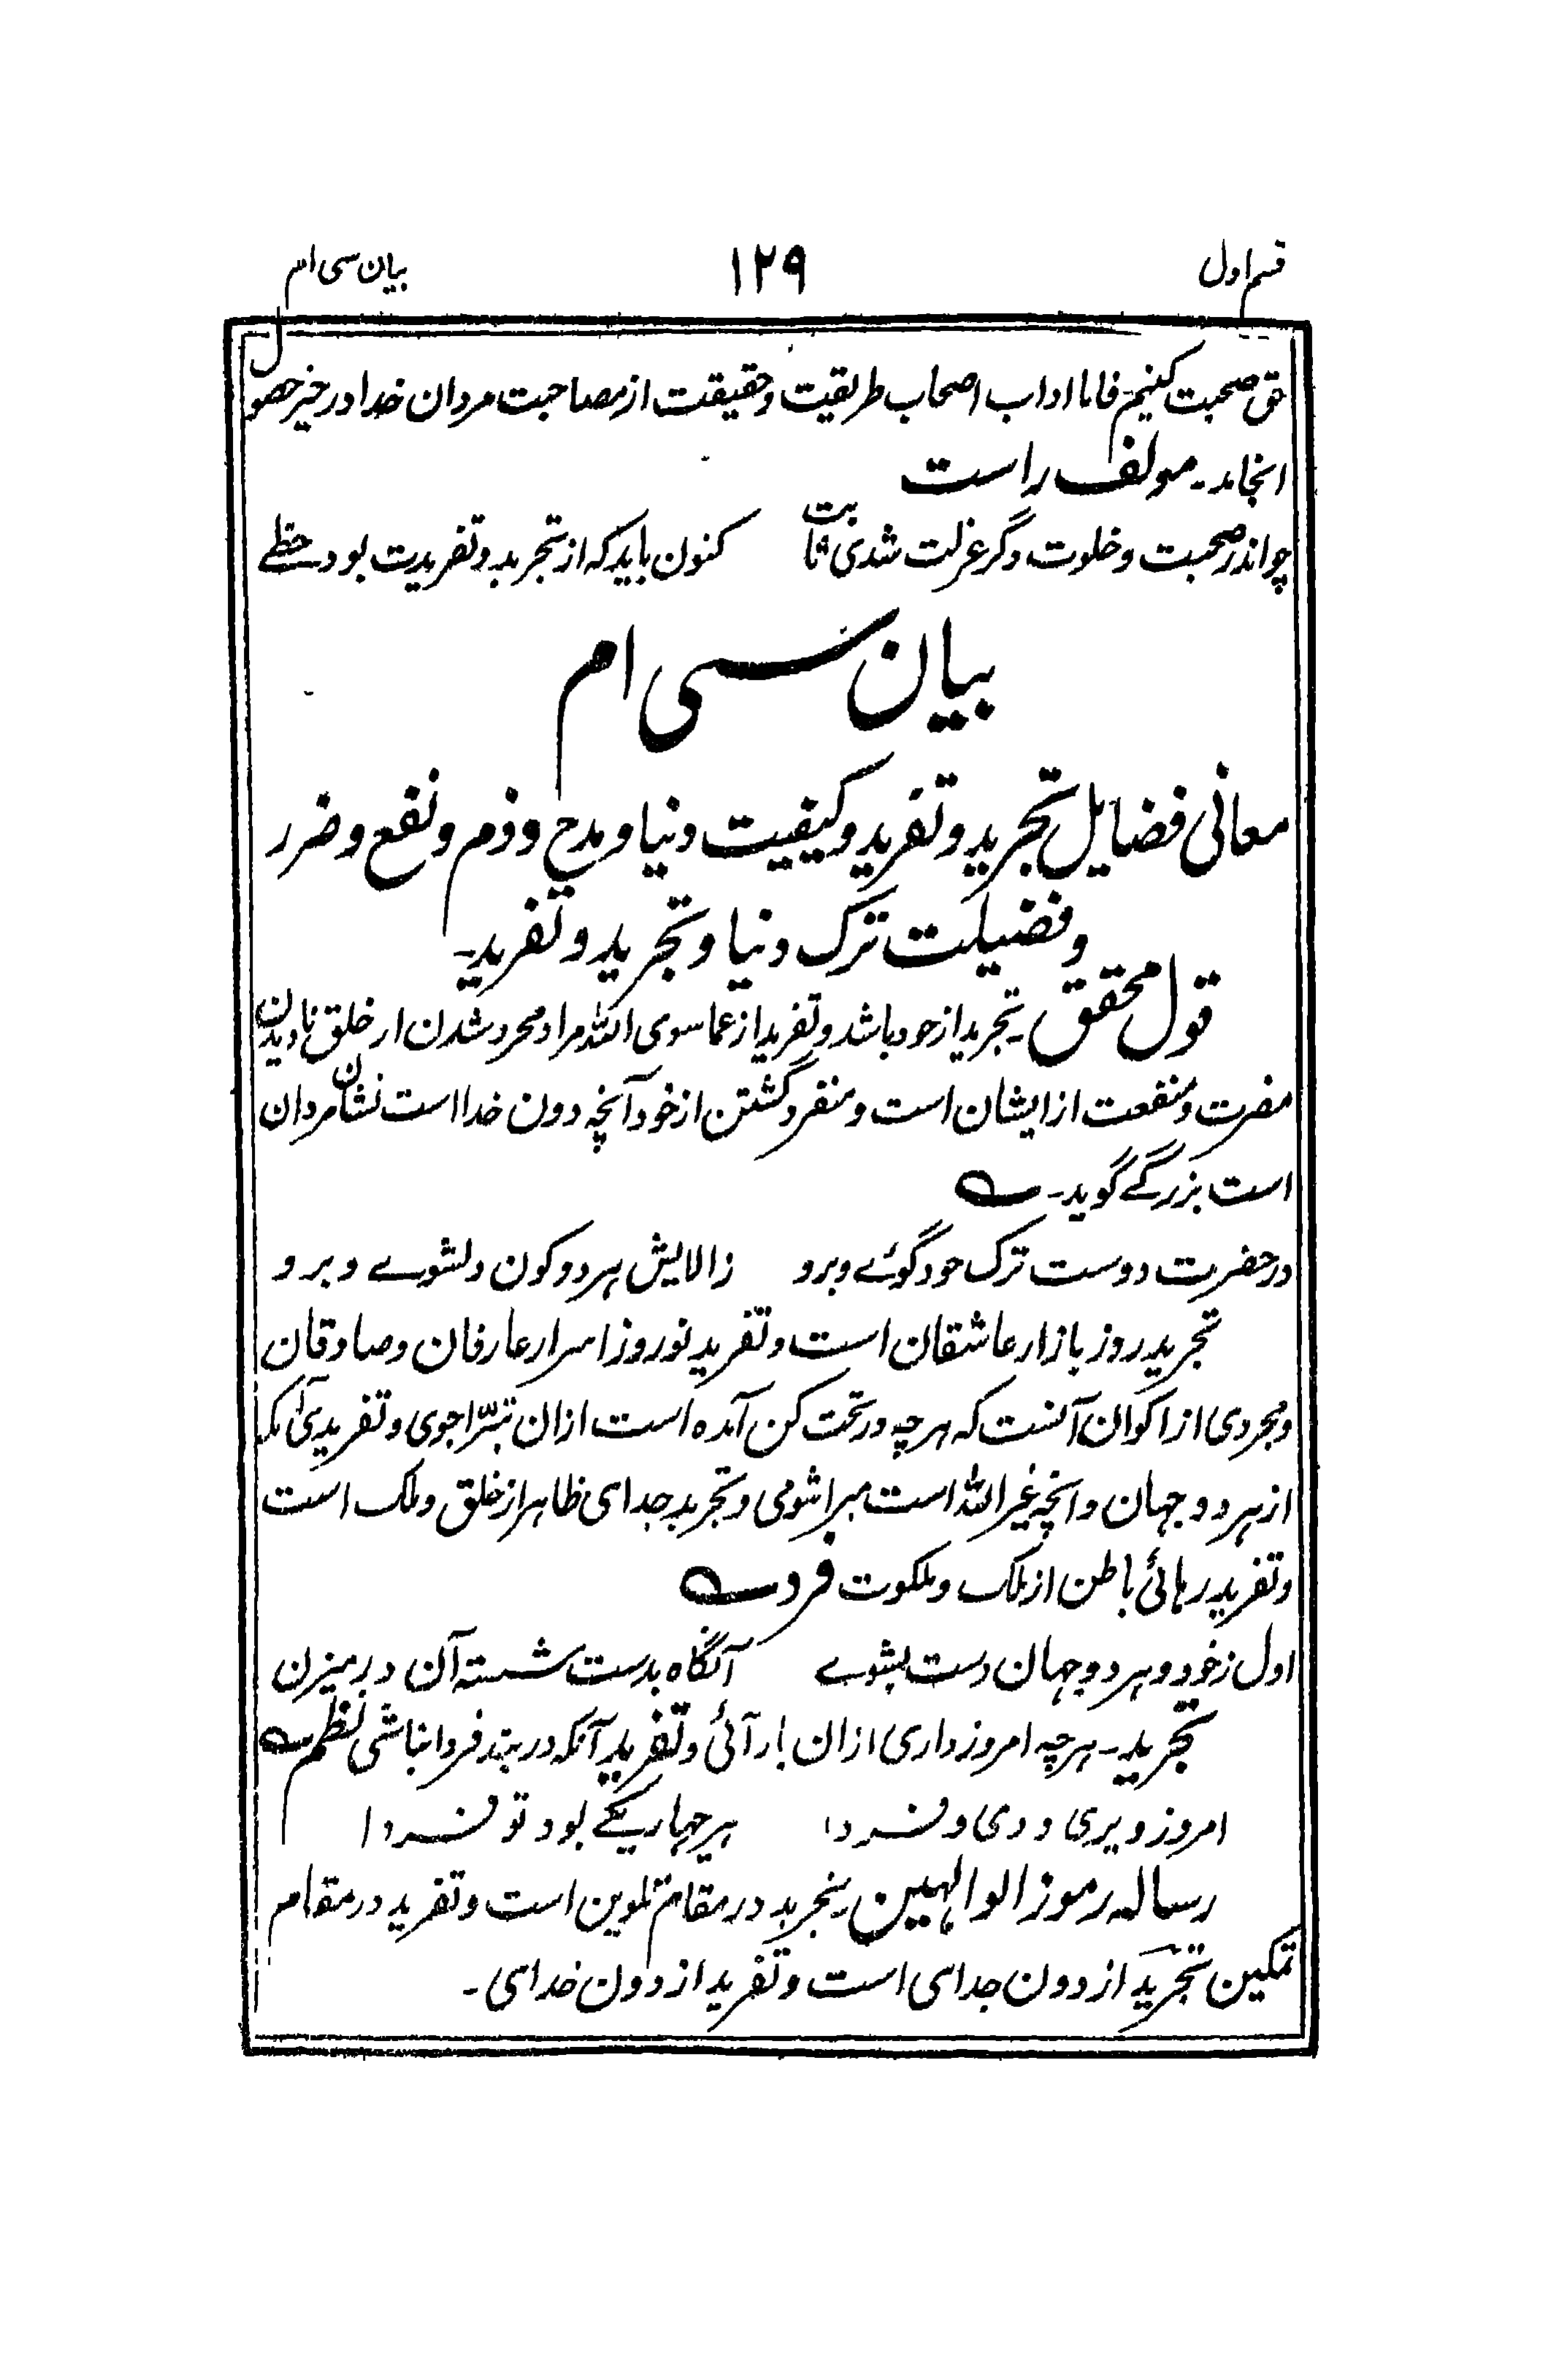 قسم اول ۱۲۹ بیان سی ام
حق صحبت کنیم فاما اداب اصحاب طریقیت وحقیقت از مصاحبت مردان خدا در خیر حصول
انجامد۔ مولف راست
چو اندر صحبت و خلوت دگر عزلت شدی ثابت کنون باید که از تجرید و تفریدت بود حظے
بیان سی ام
معانی فضایل تجرید و تفرید و کیفیت دنیا و مدح و ذم و نفع و ضرر
و فضیلت ترک دنیا و تجرید و تفرید۔
قول محقق۔ تجرید از خود باشد و تفرید از عما سوی الله مراد مجرد شدن از خلق نادیدن
مضرت و منفعت از ایشان است و منفرد گشتن از خود آنچه دون خدا است نشان مردان
است بزرگے گوید۔
در حضرت دوست ترک خود گوئے و برو زالایش هر دو کون دلشوے و برو
تجرید روز بازار عاشقان است و تفرید نوروز اسرار عارفان و صادقان
و مجردی از اکوان آنست که هر چه در تحت کن آمده است ازان تبرّا جوی و تفریدی آنکه
از هر دو جهان و انچه غیر الله است مبرا شومی و تجرید جدای ظاهر از خلق و ملک است
و تفرید رهائی باطن از ملک و ملکوت فرد
اول ز خود و هر دو جهان دست بشوے آنگاه بدست شسته آن در میزن
تجرید۔ هرچه امروز داری ازان بار آئی و تفرید آنکه در بند فردا نباشی نظم
امروز و پری و دی و فردا هر چهار یکے بود تو فردا
رساله رموز الوالهین۔ تجرید در مقام تلوین است و تفرید در مقام
تمکین تجرید از دون جدای است و تفرید از دون خدای۔